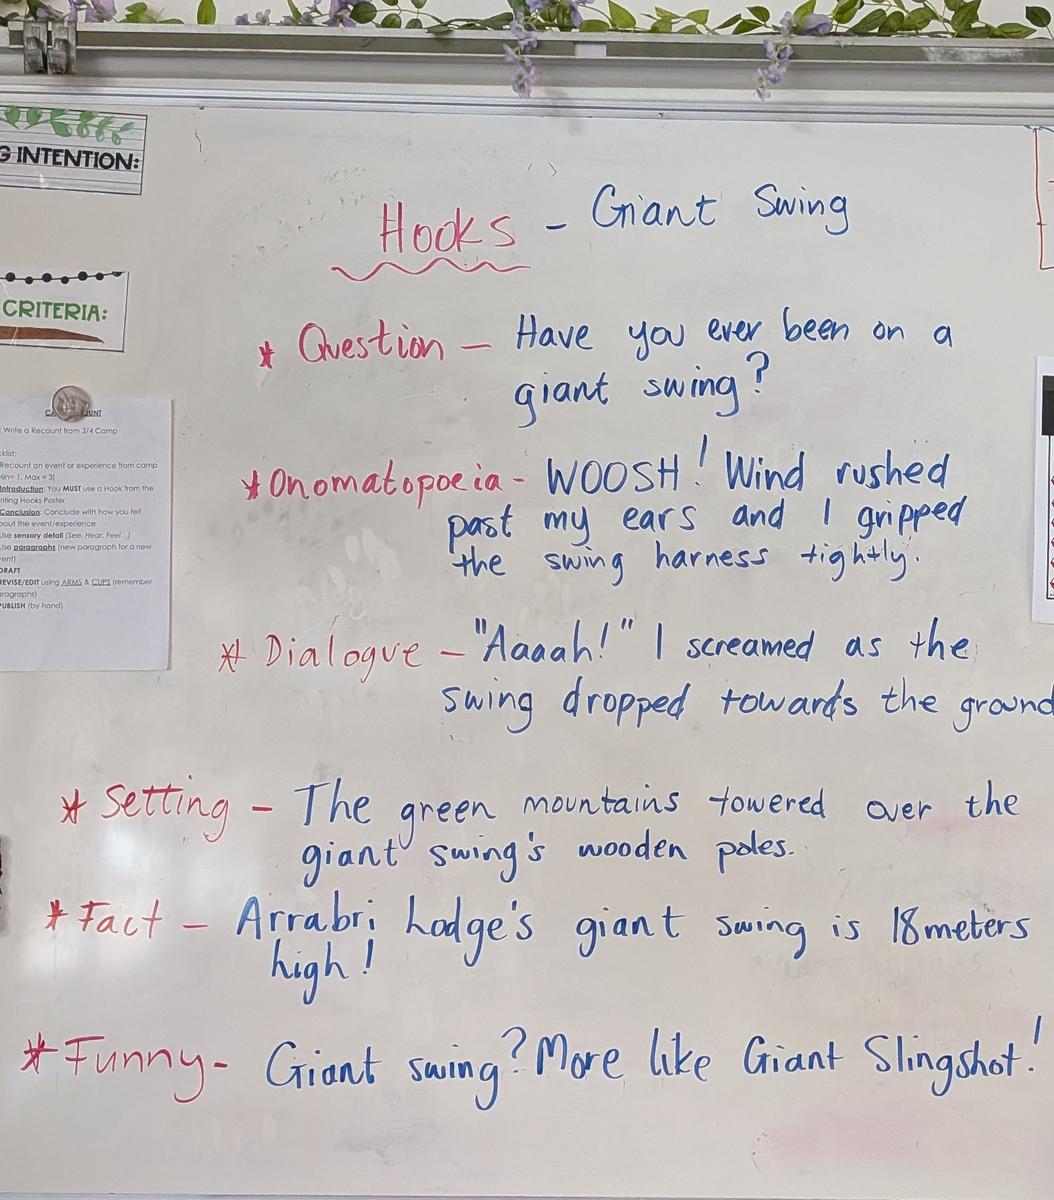 G INTENTION:
CRITERIA:
Write a Recount from 3/4 Camp
klist:
Recount an event or experience from camp
in= 1, Max = 3)
Introduction: You MUST use a Hook from the
riting Hooks Poster
Conclusion: Conclude with how you felt
bout the event/experience
se sensory detail (See, Hear, Feel...)
se paragraphs (new paragraph for a new
ent)
DRAFT
REVISE/EDIT using ARMS & CUPS (remember
ragraphs)
PUBLISH (by hand)
Hooks - Giant Swing
* Question - Have you ever been on a
giant swing?
* Onomatopoeia - WOOSH! Wind rushed
past my ears and I gripped
the swing harness tightly.
* Dialogue - "Aaaah!" I screamed as the
swing dropped towards the ground
* Setting - The green mountains towered over the
giant swing's wooden poles.
* Fact - Arrabri Lodge's giant swing is 18meters
high!
* Funny - Giant swing? More like Giant Slingshot!